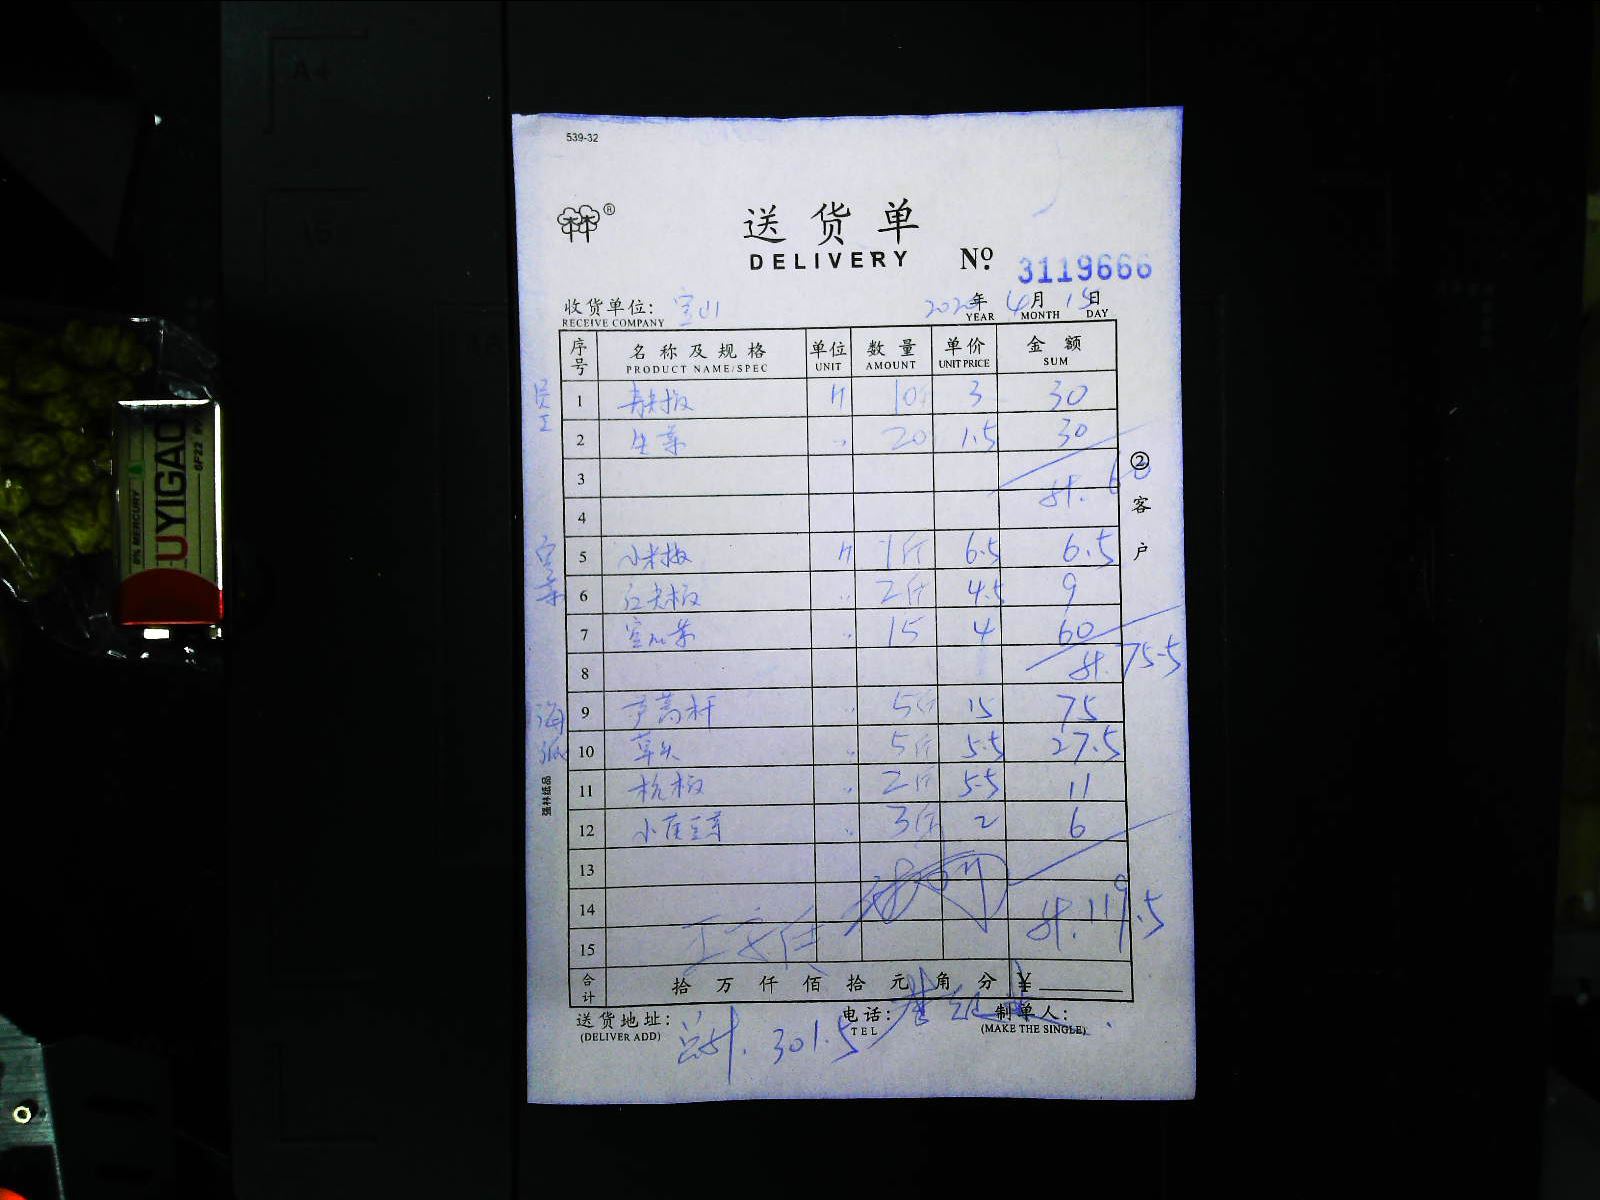 539-32
®
送货单
DELIVERY
Nº. 3119666
收货单位: 宝山
RECEIVE COMPANY
2020年 4月 15日
YEAR MONTH DAY
序号 名称及规格 单位 数量 单价 金额
PRODUCT NAME/SPEC UNIT AMOUNT UNIT PRICE SUM
员工
1 青尖椒 10斤 3 30
2 生菜 20 1.5 30
3 计. 60
4
②客户
5 小米椒 1斤 6.5 6.5
6 红尖椒 2斤 4.5 9
7 空心菜 15 4 60
8 计. 75.5
海派
9 蒿杆 5斤 15 75
10 草头 5斤 5.5 27.5
11 杭椒 2斤 5.5 11
12 小黄豆芽 3斤 2 6
13
14 计. 119.5
15
强林纸品
合计 拾 万 仟 佰 拾 元 角 分 ¥
送货地址: 电话: 制单人:
(DELIVER ADD) TEL (MAKE THE SINGLE)
总计. 301.5
0% MERCURY
UYIGAO
6F22 9V
A4